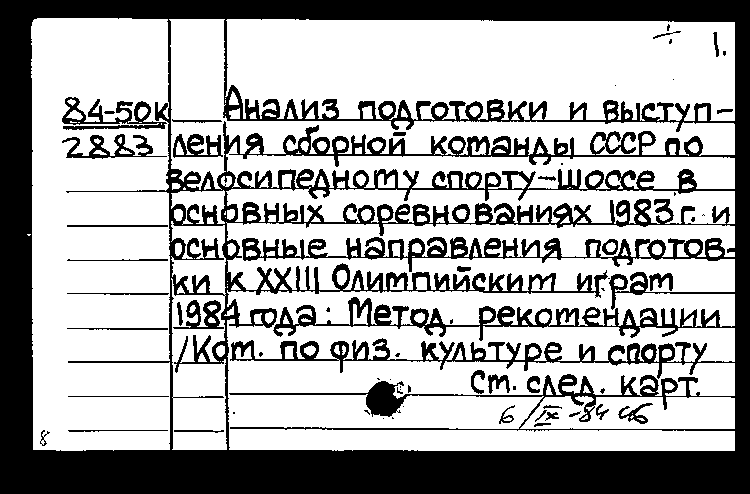 ÷ 1.
84-50к Анализ подготовки и выступ-
2883 ления сборной команды СССР по
велосипедному спорту-шоссе в
основных соревнованиях 1983 г. и
основные направления подготов-
ки к XXIII Олимпийским играм
1984 года: Метод. рекомендации
/Ком. по физ. культуре и спорту
См. след. карт.
6/IX-84
8